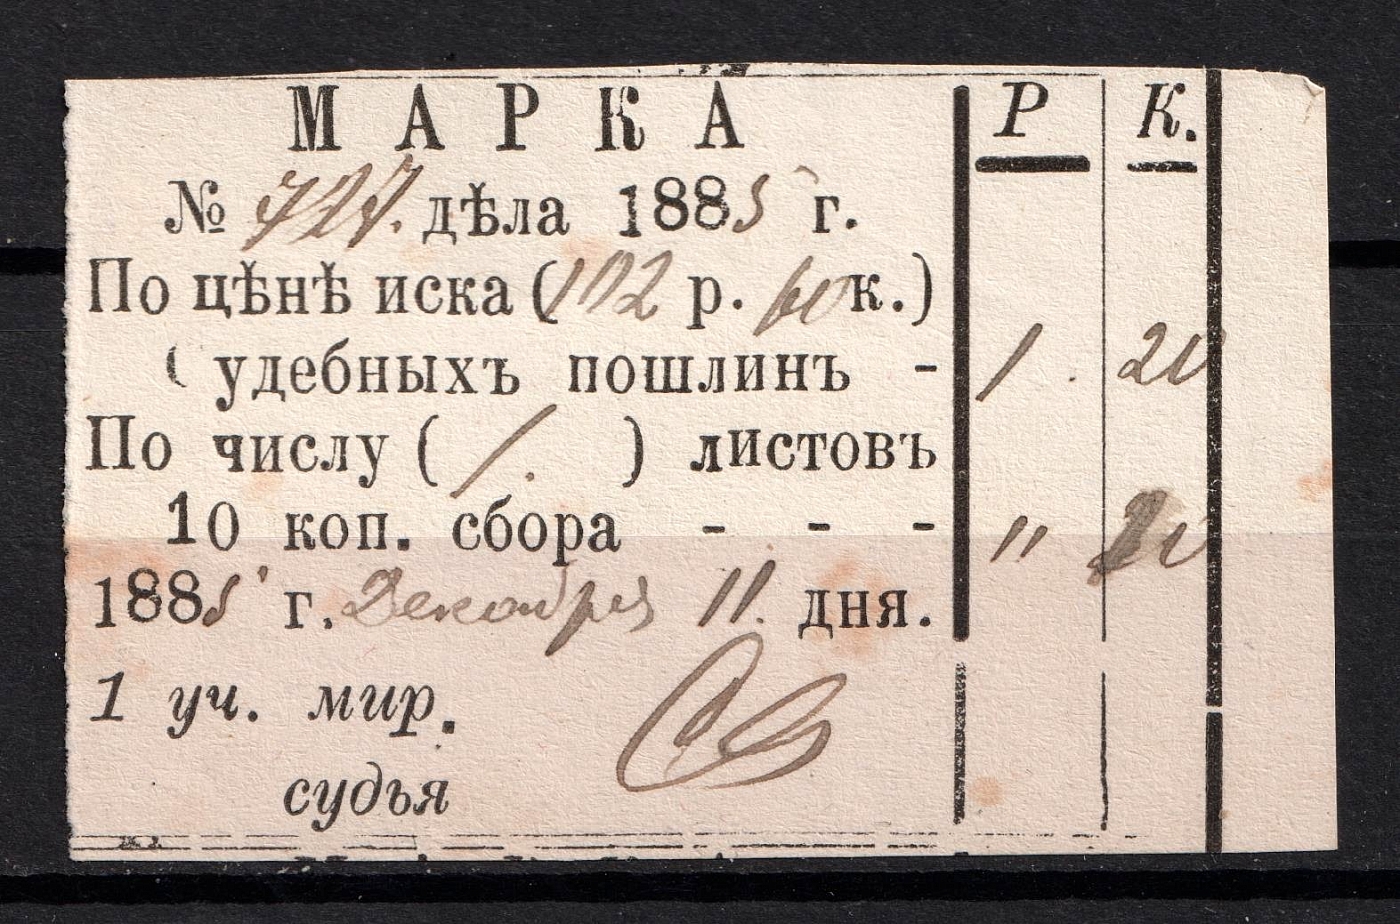 МАРКА Р К.
№ 727. дѣла 1885 г.
По цѣнѣ иска (102 р. 60 к.)
Судебныхъ пошлинъ - 1. 20
По числу ( 1. ) листовъ
10 коп. сбора - - - " 20
1885 г. Декабря 11. дня.
1 уч. мир.
судья